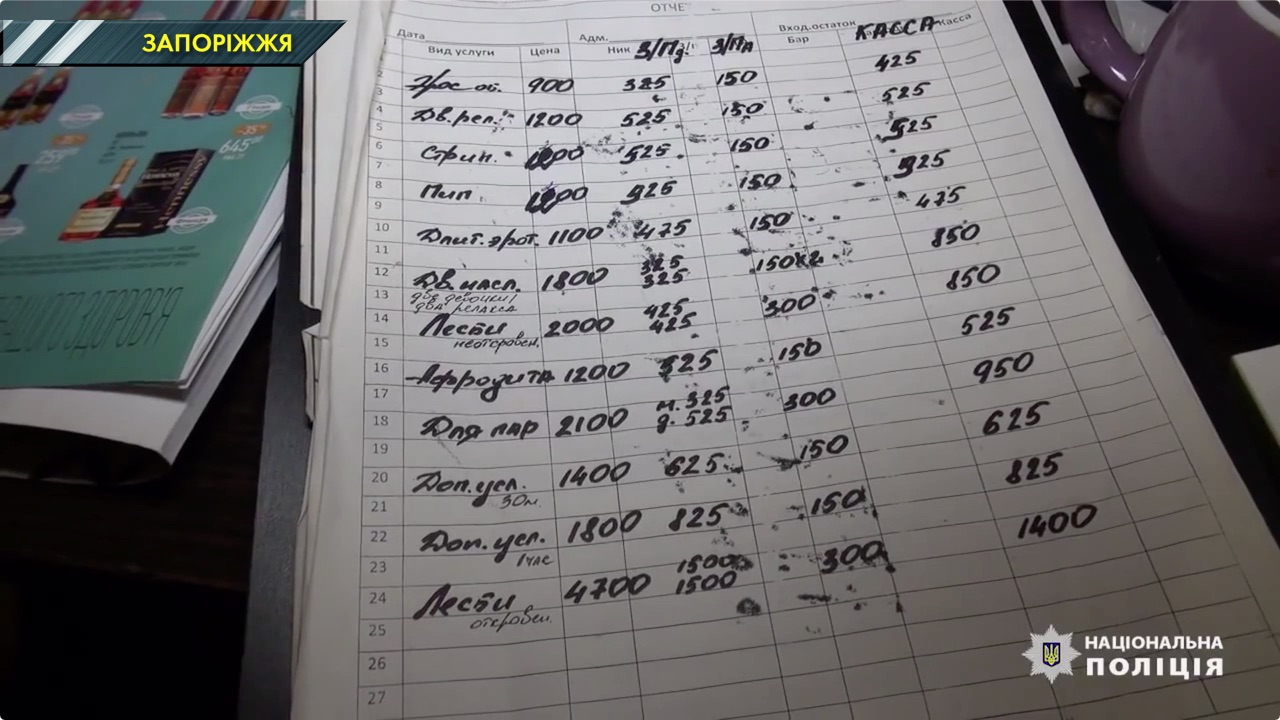 ЗАПОРІЖЖЯ
ОТЧЕ
Дата Адм. Вход.остаток
Вид услуги Цена Ник З/Пд. З/Па Бар КАССА Касса
Эрос об. 900 325 150 425
Дв.рел. 1200 525 150 525
Стрип. 1200 525 150 525
Пип 525 150 525
Длит.эрот. 1100 475 150 475
Дв.иасл. 1800 325 325 150х2 850
две девочки/
два релакса
Лести 2000 425 425 300 850
неоткровен.
Афродита 1200 525 150 525
Для пар 2100 м. 325 д. 525 300 950
Доп.усл. 1400 625 150 625
30м.
Доп.усл. 1800 825 150 825
1час
Лести 4700 1500 1500 300 1400
откровен.
2
3
4
5
6
7
8
9
10
11
12
13
14
15
16
17
18
19
20
21
22
23
24
25
26
27
-35%
645
НАЦІОНАЛЬНА
ПОЛІЦІЯ